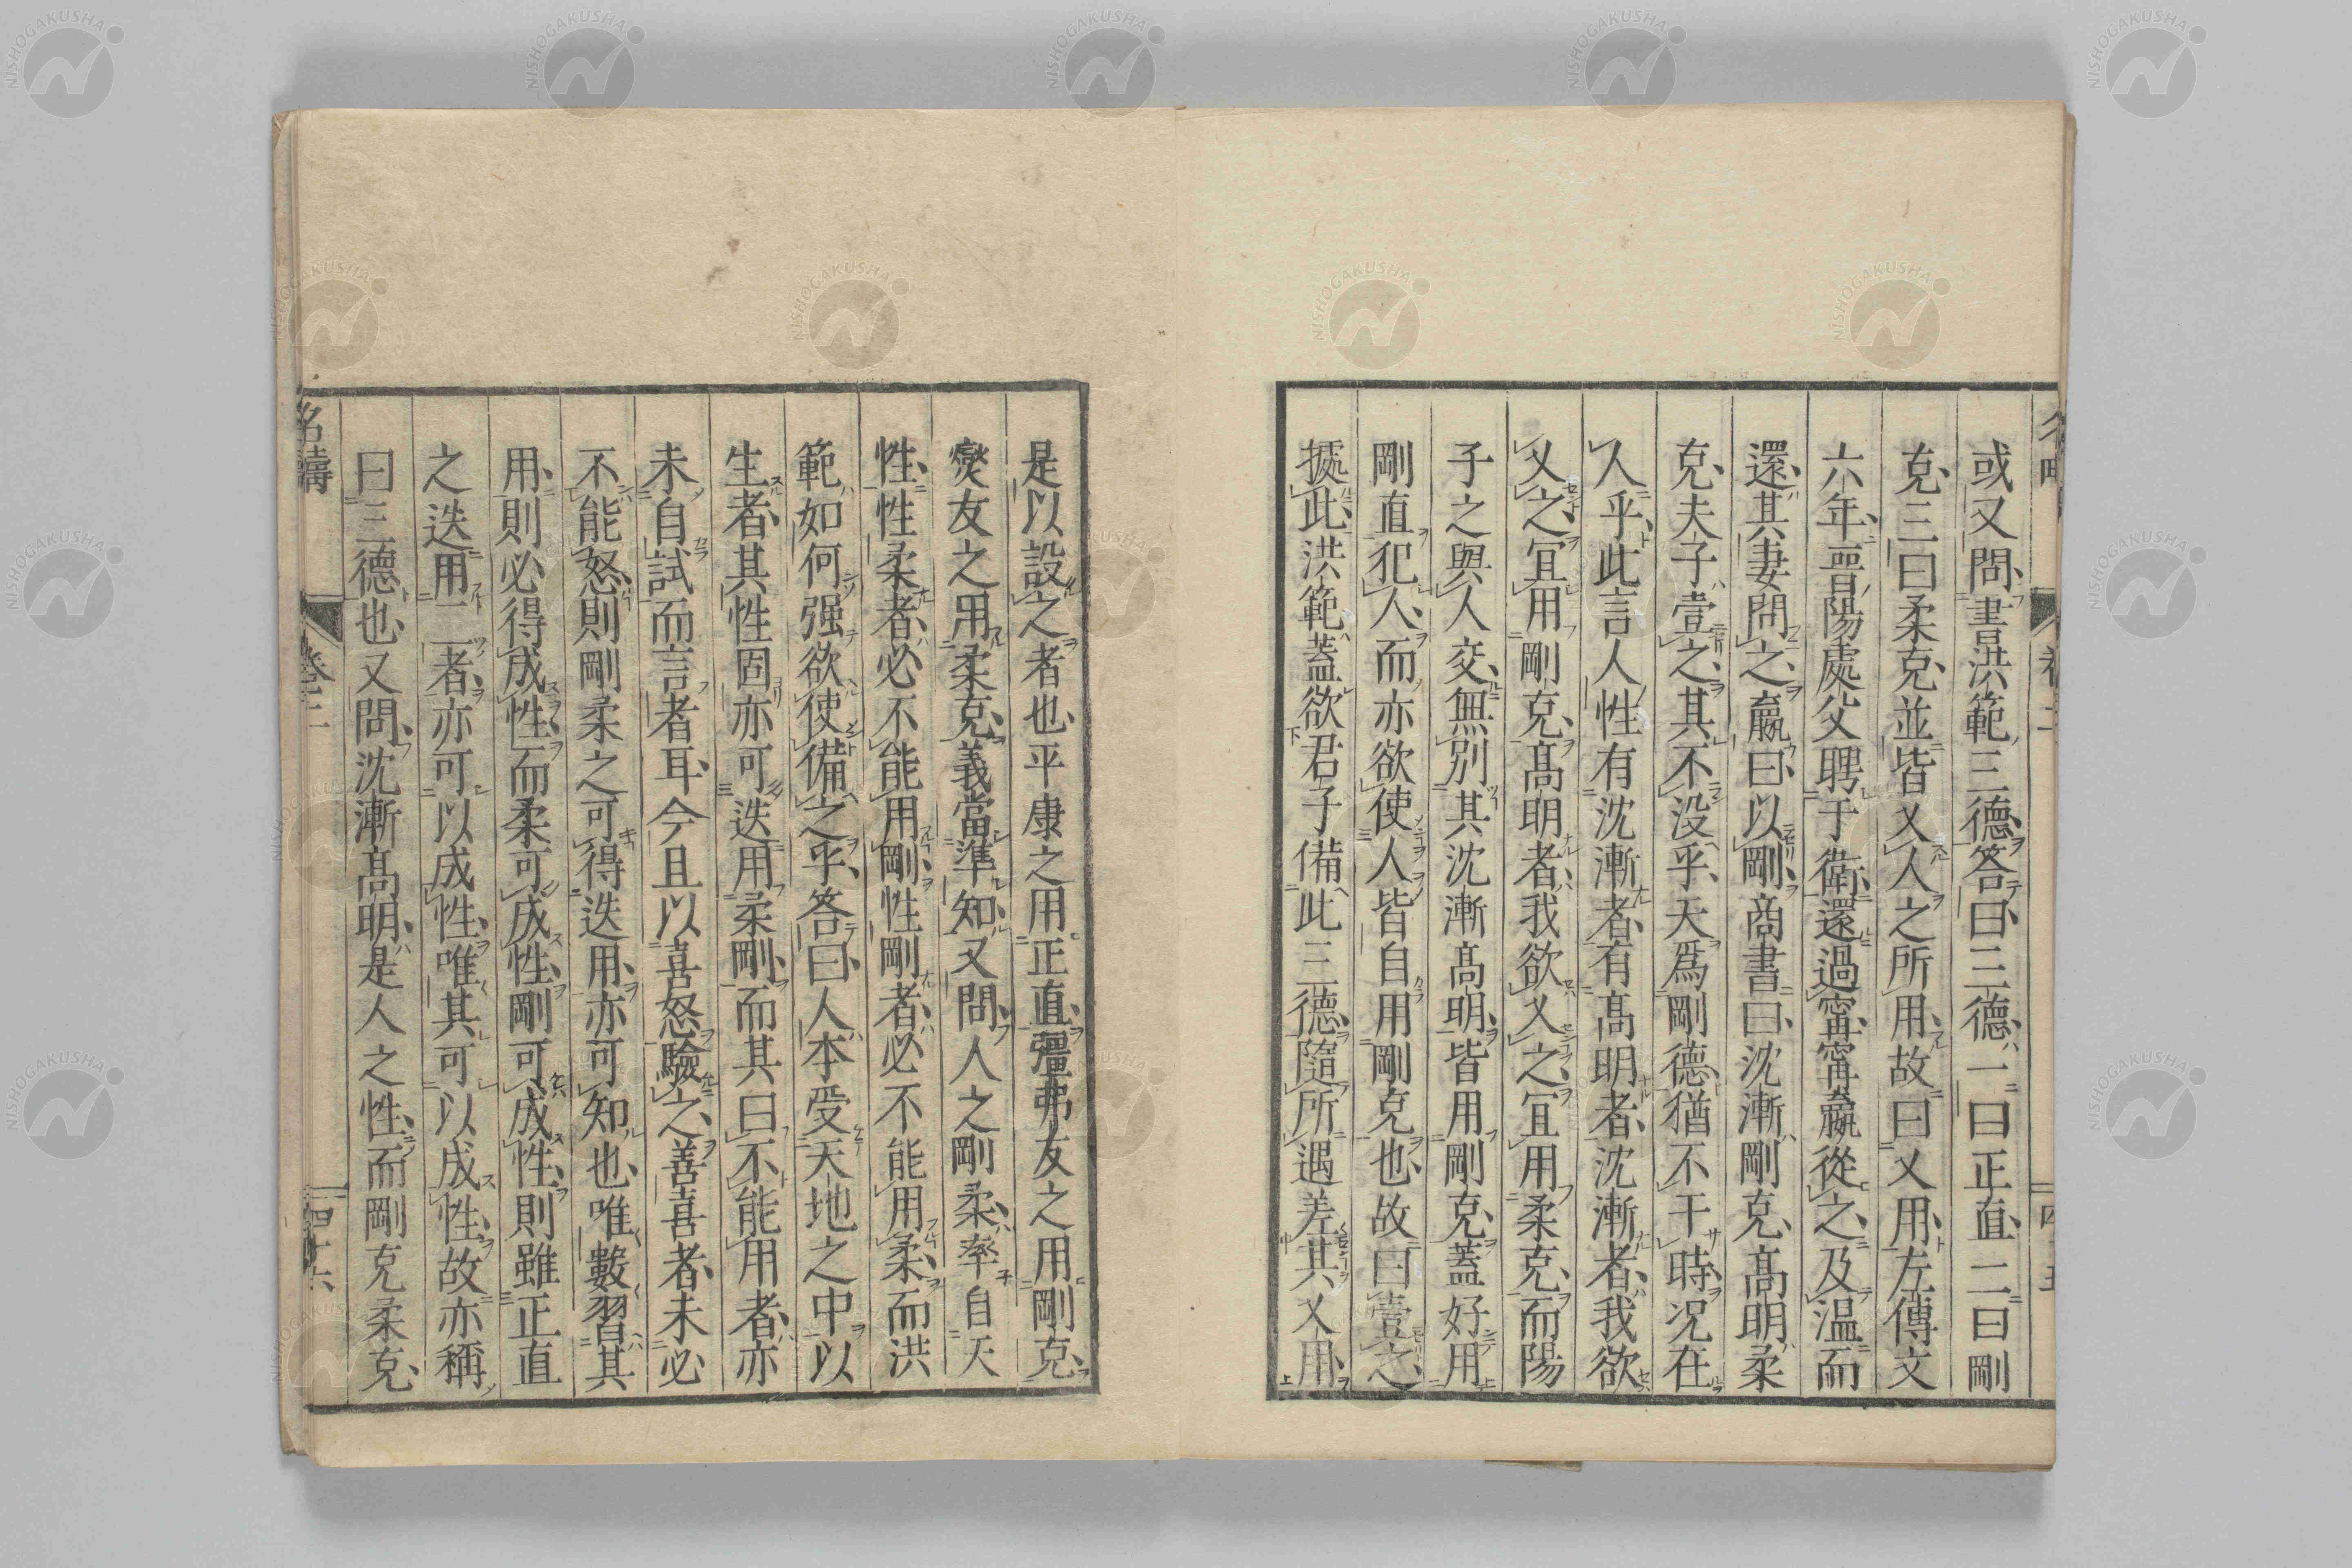 或又問、書洪範三德、答曰、三德、一曰正直、二曰剛
克、三曰柔克、並皆乂人之所用、故曰乂用、左傳文
六年、晋陽處父聘于衛、還過甯、甯嬴從之、及溫而
還、其妻問之、嬴曰、以剛、商書曰、沈漸剛克、高明柔
克、夫子壹之、其不沒乎、天爲剛德、猶不干時、況在
人乎、此言人性有沈漸者、有高明者、沈漸者、我欲
乂之、宜用剛克、高明者、我欲乂之、宜用柔克、而陽
子之與人交、無別其沈漸高明、皆用剛克、蓋好用
剛直犯人、而亦欲使人皆自用剛克也、故曰壹之、
據此、洪範蓋欲君子備此三德、隨所遇差其乂用、
是以設之者也、平康之用正直、彊弗友之用剛克、
燮友之用柔克、義當準知、又問、人之剛柔、率自天
性、性柔者、必不能用剛、性剛者、必不能用柔、而洪
範如何强欲使備之乎、答曰、人本受天地之中以
生者、其性固亦可迭用柔剛、而其曰不能用者、亦
未自試而言者耳、今且以喜怒驗之、善喜者、未必
不能怒、則剛柔之可得迭用、亦可知也、唯數習其
用、則必得成性、而柔可成性、剛可成性、則雖正直
之迭用二者、亦可以成性、唯其可以成性、故亦稱
曰三德也、又問、沈漸高明、是人之性、而剛克柔克、
名疇
卷三
四十六